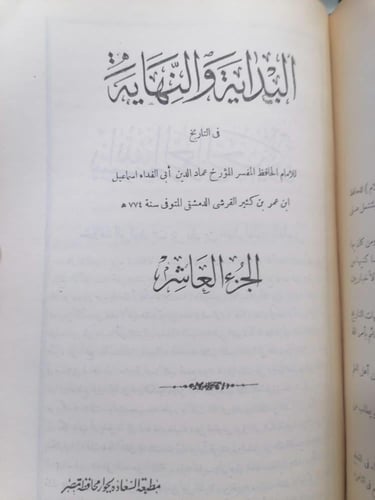 البداية والنهاية
فى التاريخ
للامام الحافظ المفسر المؤرخ عماد الدين أبى الفداء اسماعيل
ابن عمر بن كثير القرشى الدمشقى المتوفى سنة ٧٧٤ ھ
الجزء العاشر
مطبعة السعادة بجوار محافظة مصر